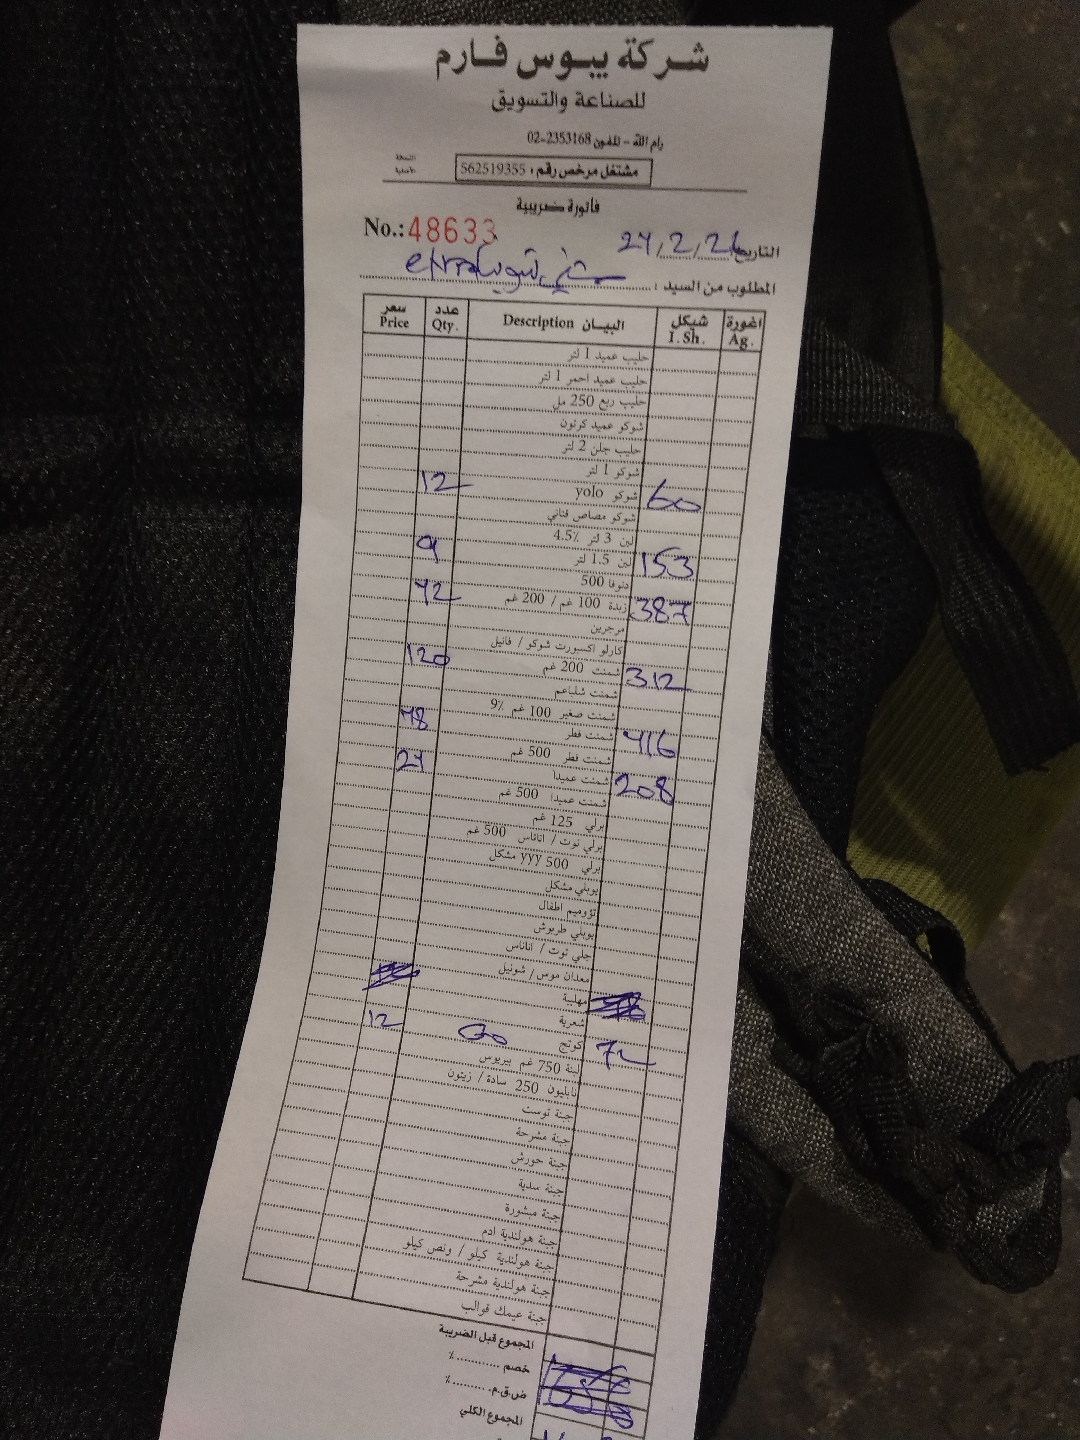 شركة يبوس فارم
للصناعة والتسويق
رام الله - تلفون 2353168-02
مشتغل مرخص رقم: 562519355
النسخة الأصلية
فاتورة ضريبية
No.: 48633
التاريخ 24/2/21
المطلوب من السيد: extra
اغورة Ag. شيكل I.Sh. البيان Description عدد Qty. سعر Price
حليب عميد 1 لتر
حليب عميد احمر 1 لتر
حليب ربع 250 مل
شوكو عميد كرتون
حليب جلن 2 لتر
شوكو 1 لتر
60 شوكو yolo 12
شوكو مصاص قناني
لبن 3 لتر 4.5%
153 لبن 1.5 لتر 9
دنوفا 500
387 زبدة 100 غم / 200 غم 42
مرجرين
كارلو اكسبورت شوكو / فانيل
312 شمنت 200 غم 120
شمنت شلباعم
شمنت صغير 100 غم 9%
416 شمنت فطر 48
شمنت فطر 500 غم
208 شمنت عميدا 24
شمنت عميدا 500 غم
برلي 125 غم
برلي توت / اناناس 500 غم
برلي yyy 500 مشكل
يوبلي مشكل
تؤوميم اطفال
يوبلي طربوش
جلي توت / اناناس
معدان موس / شوتيل
مهلبية
شعرية
72 كوتج 12
لبنة 750 غم بيربوس
نابليون 250 سادة / زيتون
جبنة توست
جبنة مشرحة
جبنة حورش
جبنة سدية
جبنة مبشورة
جبنة هولندية ادم
جبنة هولندية كيلو / ونص كيلو
جبنة هولندية مشرحة
جبنة عيمك قوالب
المجموع قبل الضريبة
خصم ........... %
ض.ق.م. ........ %
المجموع الكلي